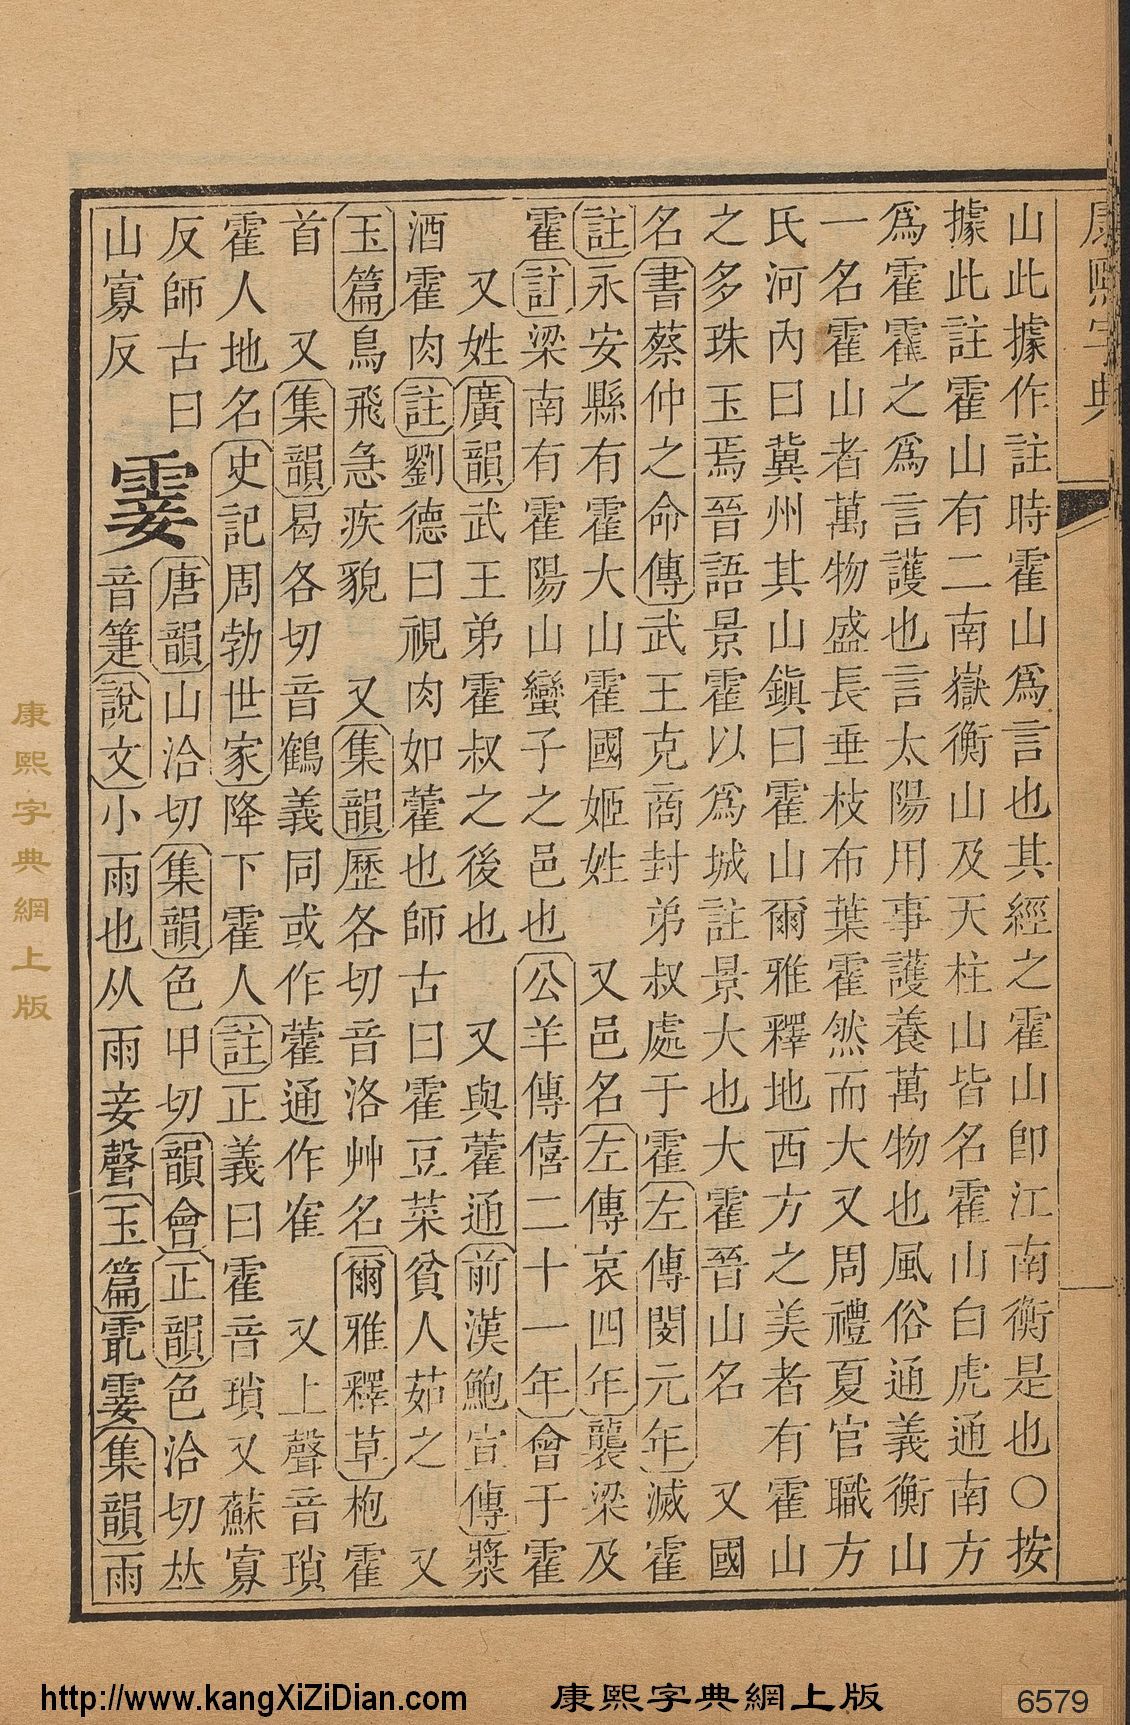 康熙字典
山此據作註時霍山爲言也其經之霍山卽江南衡是也○按
據此註霍山有二南嶽衡山及天柱山皆名霍山白虎通南方
爲霍霍之爲言護也言太陽用事護養萬物也風俗通義衡山
一名霍山者萬物盛長垂枝布葉霍然而大又周禮夏官職方
氏河內曰冀州其山鎭曰霍山爾雅釋地西方之美者有霍山
之多珠玉焉晉語景霍以爲城註景大也大霍晉山名 又國
名書蔡仲之命傳武王克商封弟叔處于霍左傳閔元年滅霍
註永安縣有霍大山霍國姬姓 又邑名左傳哀四年襲梁及
霍註梁南有霍陽山蠻子之邑也公羊傳僖二十一年會于霍
 又姓廣韻武王弟霍叔之後也 又與藿通前漢鮑宣傳漿
酒霍肉註劉德曰視肉如藿也師古曰霍豆菜貧人茹之 又
玉篇鳥飛急疾貌 又集韻歷各切音洛艸名爾雅釋草枹霍
首 又集韻曷各切音鶴義同或作藿通作隺 又上聲音瑣
霍人地名史記周勃世家降下霍人註正義曰霍音瑣又蘇寡
反師古曰山寡反
霎
唐韻山洽切集韻色甲切韻會正韻色洽切𠀤音箑說文小雨也从雨妾聲玉篇霅霎集韻雨
康熙字典網上版
http://www.kangXiZiDian.com
康熙字典網上版
6579